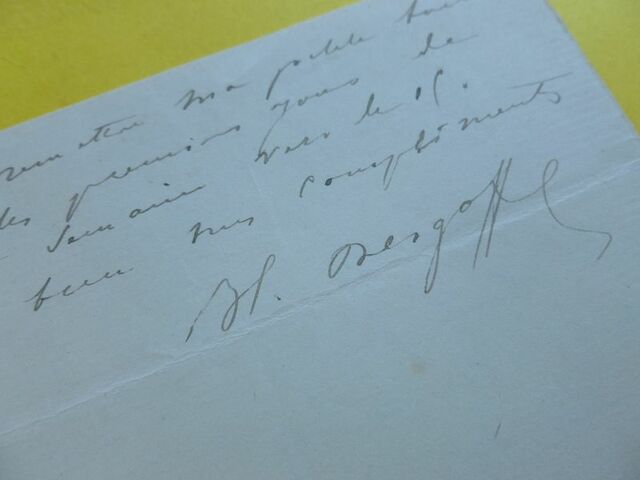 remettre ma petite
les premiers jours de
semaine vers le 15.
bien mes compliments
Bl. Desgoffe